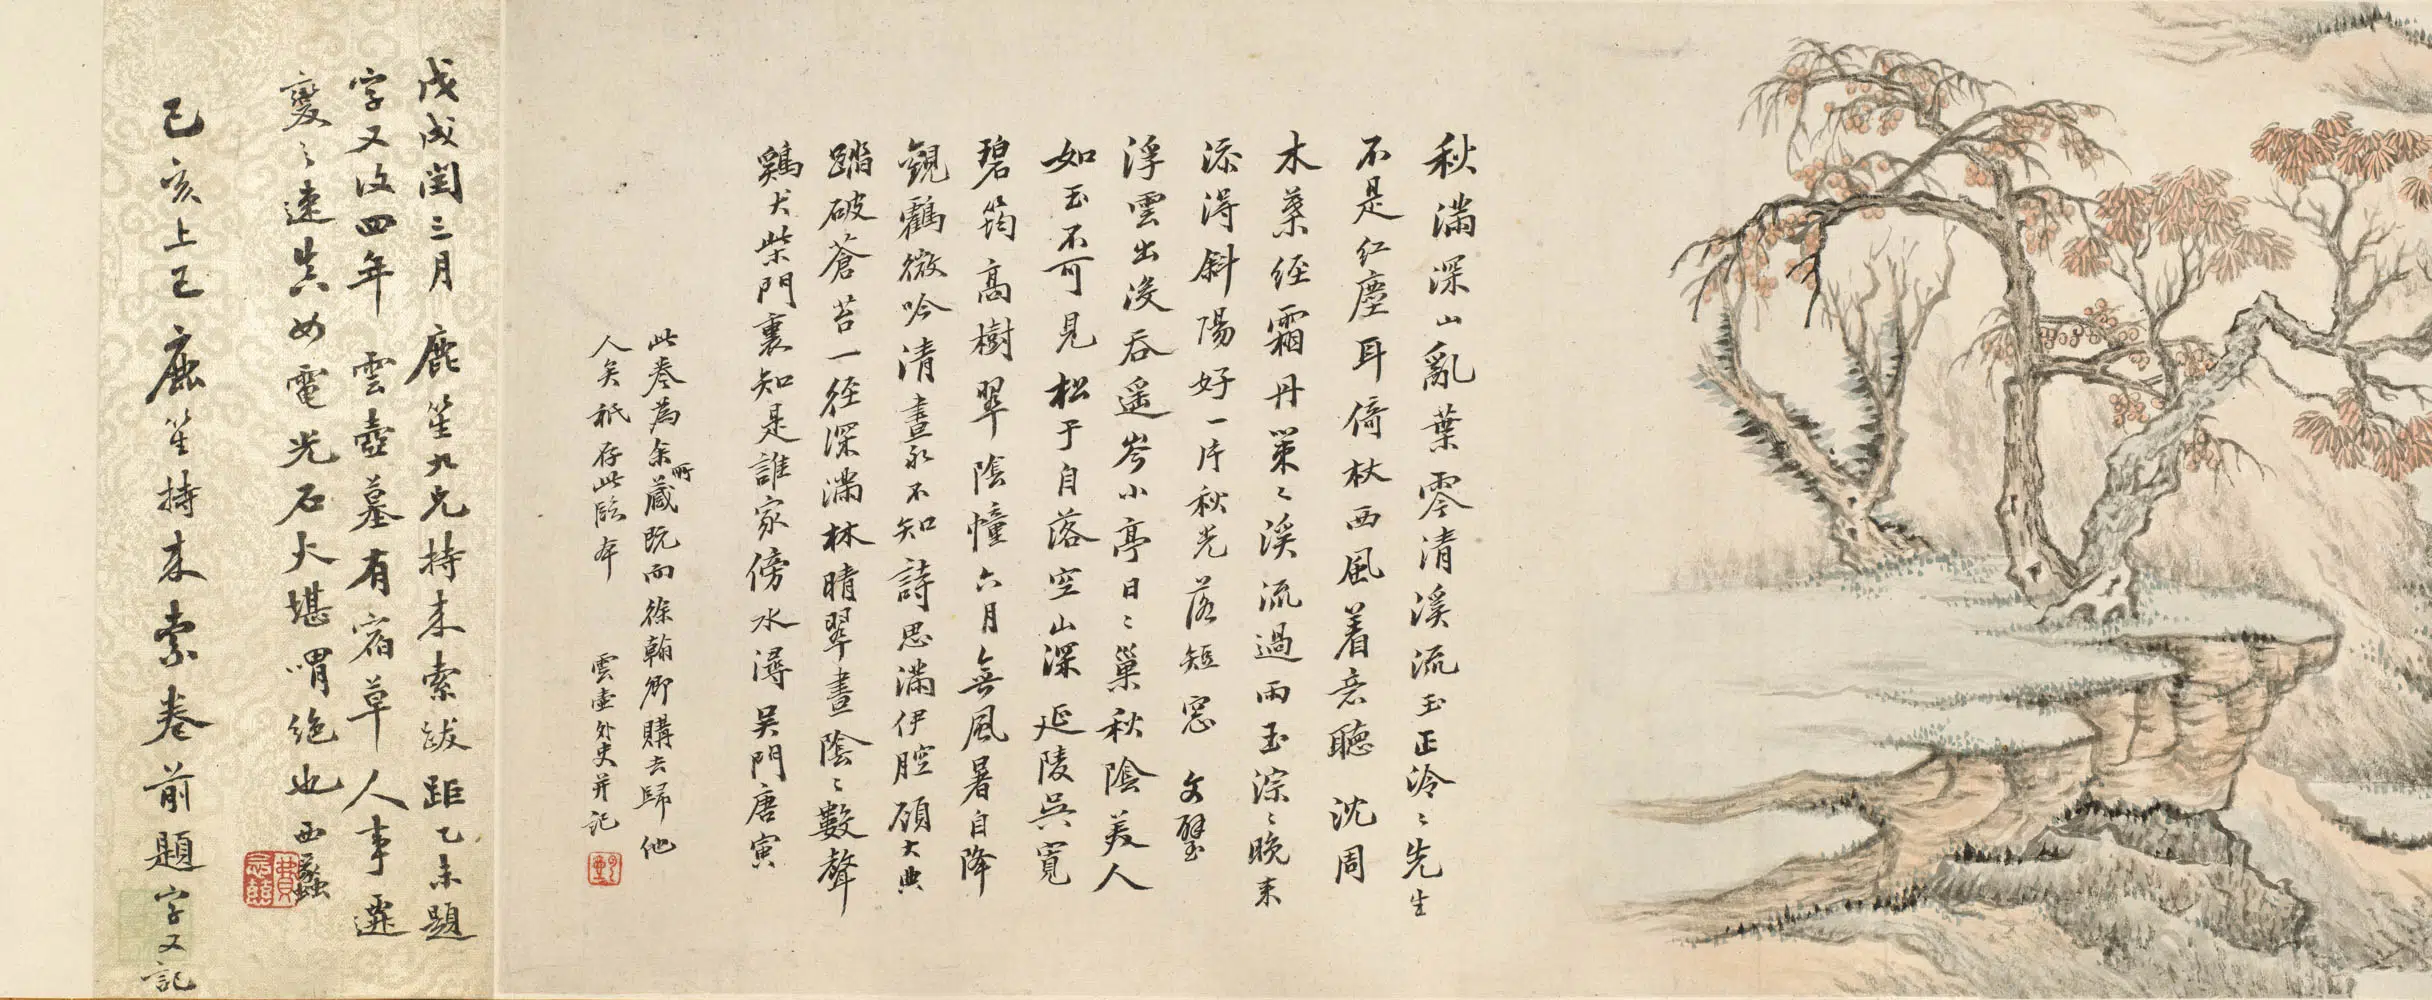 秋滿深山亂葉零清溪流玉正泠〻先生
不是紅塵耳倚杖西風着意聽 沈周
木葉經霜丹策〻溪流過雨玉淙〻晚来
添得斜陽好一片秋光落短窓 文璧
浮雲出没吞遥岑小亭日〻巢秋陰美人
如玉不可見松子自落空山深 延陵吳寬
碧筠高樹翠陰幢六月無風暑自降
觀鸖微吟清晝永不知詩思滿伊腔 顧大典
踏破蒼苔一径深滿林晴翠晝陰〻數聲
鷄犬柴門裏知是誰家傍水潯 吴門唐寅
此卷為余所藏既而徐翰卿購去歸他
人矣祇存此臨本 雲壺外史并記
戊戌閏三月 鹿笙九兄持来索跋距乙未題
字又汶四年 雲壺墓有宿草人事遷
變〻速真如電光石火堪喟絶也 西蠡
己亥上巳鹿笙持来索卷前題字又記